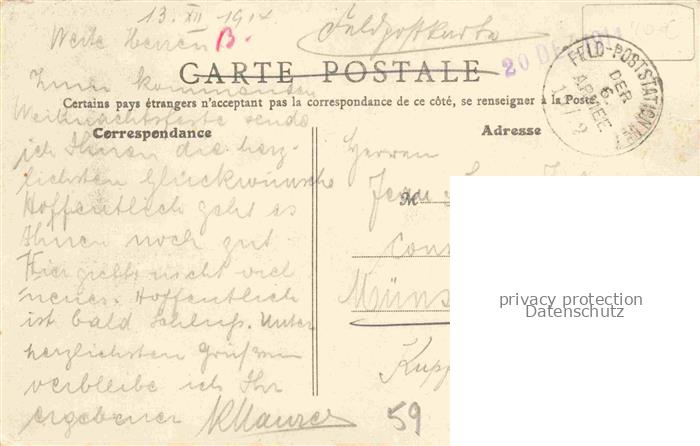 13. XII 1914
Feldpostkarte
Werte Herren B.
20 DE 1914
FELD-POSTSTATION
DER
6.
ARMEE
CARTE POSTALE
Zum kommenden
Certains pays étrangers n'acceptent pas la correspondance de ce côté, se renseigner à la Poste.
Weihnachtsfeste sende
Correspondance
Adresse
ich Ihnen die herz-
lichsten Glückwünsche
Hoffentlich geht es
Ihnen noch gut
Hier giebts nicht viel
neues. Hoffentlich
ist bald Schluß. Unter
herzlichsten Grüßen
verbleibe ich Ihr
ergebener
Herren
M
Jean
Müns
Kupp
59
privacy protection
Datenschutz